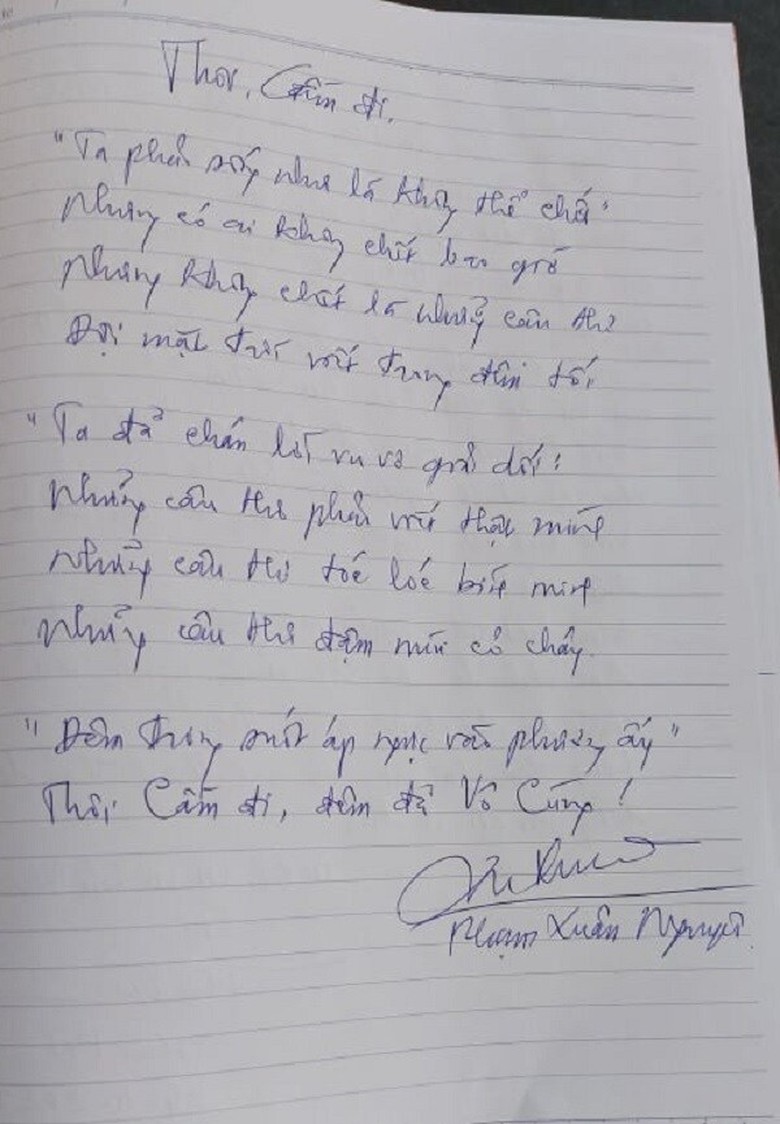 Thôi, Cầm đi.
"Ta phải sống như là không thể chết"
Nhưng có ai không chết bao giờ
Nhưng không chết là những câu thơ
Đợi mặt trời viết trong đêm tối
"Ta đã chán lời vu vơ giả dối"
Những câu thơ phải viết thật mình
Những câu thơ toé loé bình minh
Những câu thơ đậm mùi cỏ cháy.
"Đêm trong suốt áp ngực vào phương ấy"
Thôi, Cầm đi, đêm đã Vô Cùng!
Phạm Xuân Nguyên